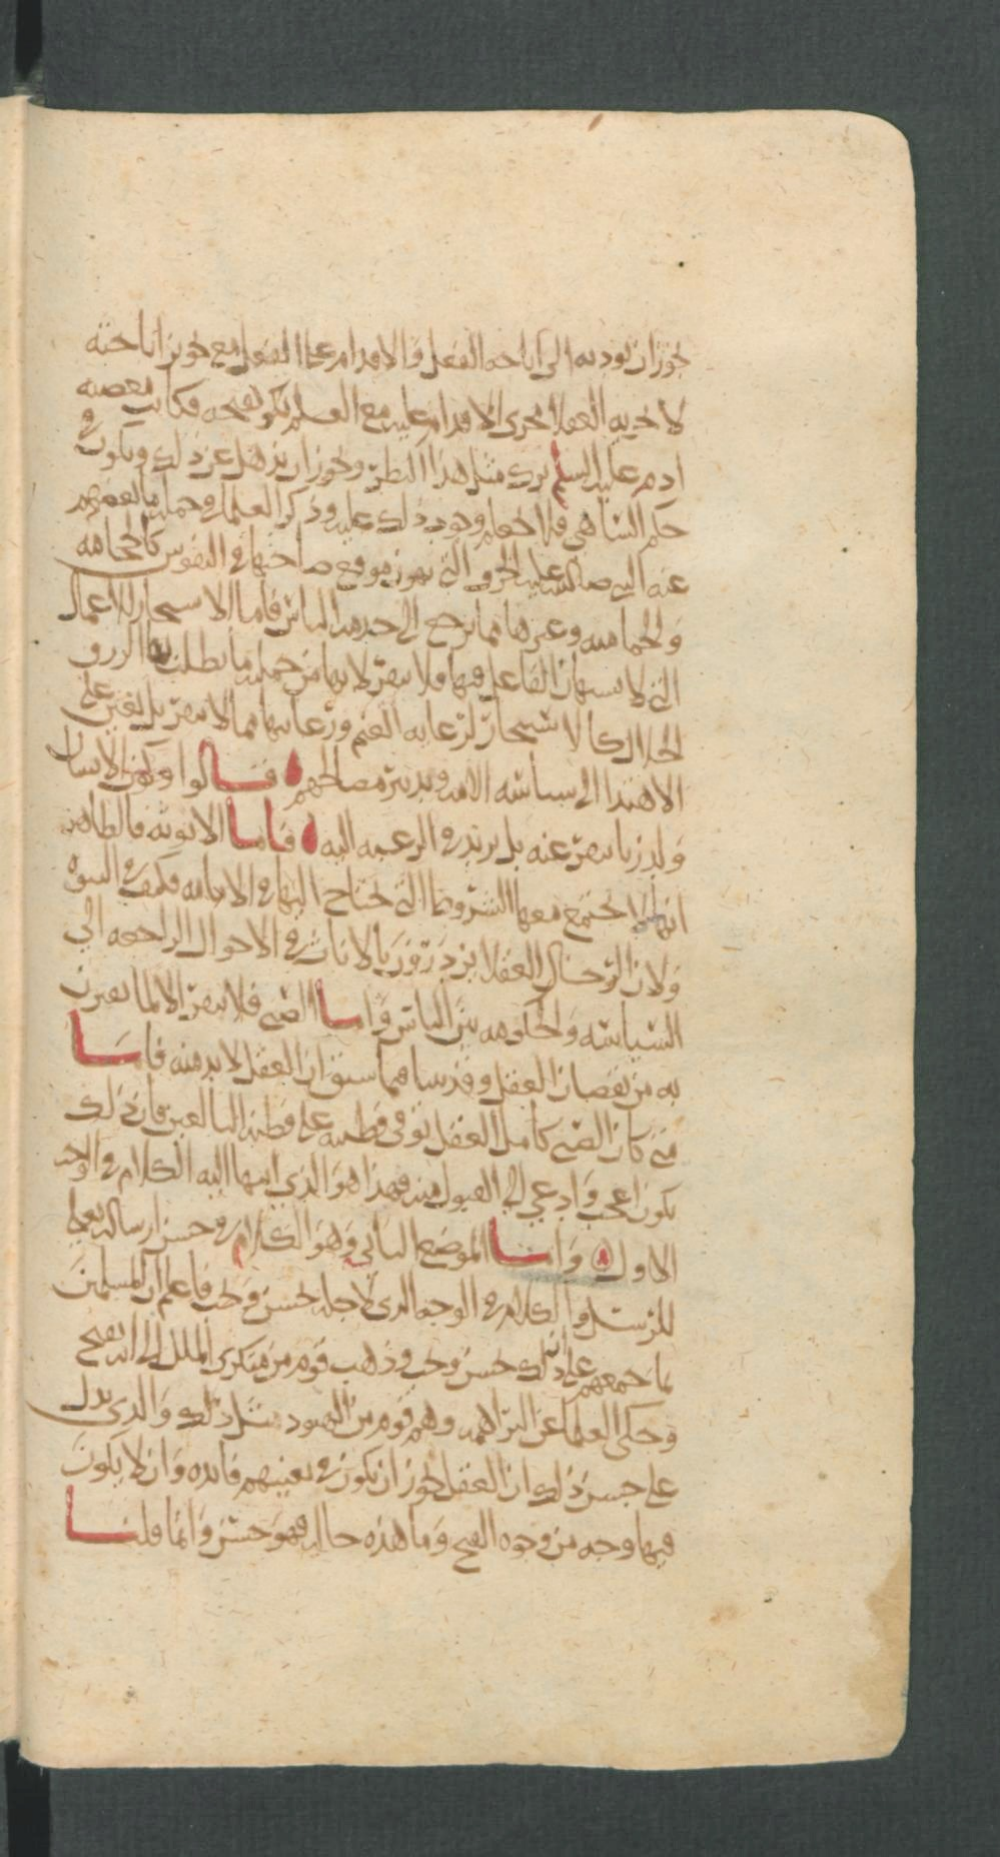 يجوز ان يوديه الى اباحه الفعل والاقدام على الفعل مع تجويز اباحته
لا الاقدام عليه مع العلم بكونه قبيحه فكانت معصيه
ادم عليه السلم ترك مثل هذا النظر ويجوز ان يذهل عن ذلك ويكون في
حكم الساهي فلا يعلم وجوب ذلك عليه وذكر العلما في جمله ما يعصمهم
عنه الله صلى الله عليه الحرف التي تهون موقع صاحبها في النفوس كالحجامه
والحماميه وغيرها مما يرجع الى خدمه الناس فاما الاستيجار للاعمال
التي لا يستهان الفاعل فيها فلا ينفر لانها من جمله ما يطلب بها الرزق
الحلال كالاستيجار لرعايه الغنم ورعايتها مما لا ينفر بل يعين على
الاهتدا الى سياسه الامه وتدبير مصالحهم قالوا وكون الانسان
ولد زنا ينفر عنه بل يزهد في الرغبه اليه فاما الانوثه فالظاهر
انها لا يجتمع معها الشروط التي تحتاج اليها في الامامه فكيف في النبوه
ولان الرجال العقلا بالاناث في الاحوال الراجعه الى
السياسه والحكومه بين الناس واما الصبي فلا ينفر الا لما يقترن
به من نقصان العقل وقد بينا فيما سبق ان العقل لا بد منه فاما
متى كان الصبي كامل العقل توفي فطنته على فطنه البالغين فان ذلك
يكون اعجب وادعى الى القبول منه فهذا هو الذي انتهى اليه الكلام في الوجه
الاول واما الموضع الثاني وهو الكلام في حسن ارساله تعالى
للرسل والكلام في الوجه الذي لاجله يحسن ويجب فاعلم ان المسلمين
باجمعهم على ان ذلك حسن وجب وذهب قوم من منكري الملل الى انه يقبح
وحكى العلما عن البراهمه وهم قوم من الهنود مثل ذلك والذي يدل
على حسن ذلك ان العقل يجوز ان يكون في بعثتهم فايده وان لا يكون
فيها وجه من وجوه القبح وما هذه حاله فهو حسن وانما قلنا